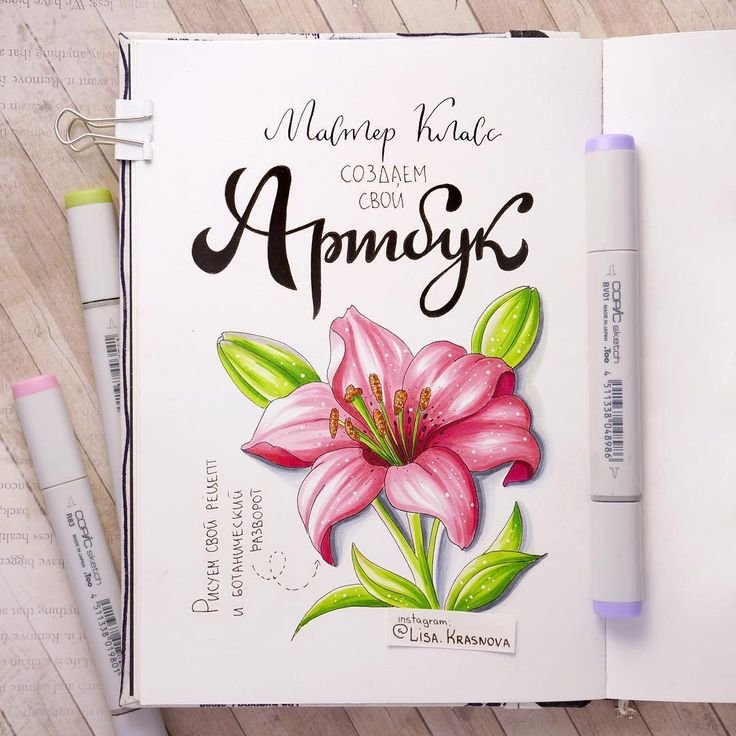 Мастер Класс
СОЗДАЕМ
СВОЙ
Артбук
РИСУЕМ СВОЙ РЕЦЕПТ
И БОТАНИЧЕСКИЙ
РАЗВОРОТ
instagram:
@LISA.KRASNOVA
COPIC sketch
BV01 MADE IN JAPAN .Too
4 511338 048986
COPIC sketch
R83 MADE IN JAPAN .Too
4 511338 019801